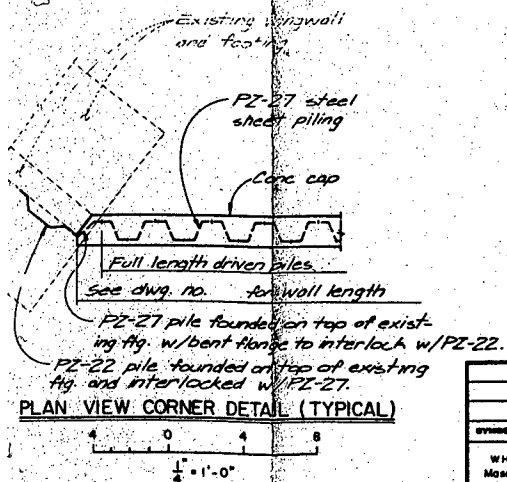 Existing wingwall
and footing
PZ-27 steel
sheet piling
Conc cap
Full length driven piles
See dwg. no. for wall length
PZ-27 pile founded on top of exist-
ing ftg. w/bent flange to interlock w/PZ-22.
PZ-22 pile founded on top of existing
ftg. and interlocked w/PZ-27.
PLAN VIEW CORNER DETAIL (TYPICAL)
4 0 4 8
1/4" = 1'-0"
SYMBOL
W.H
Maso